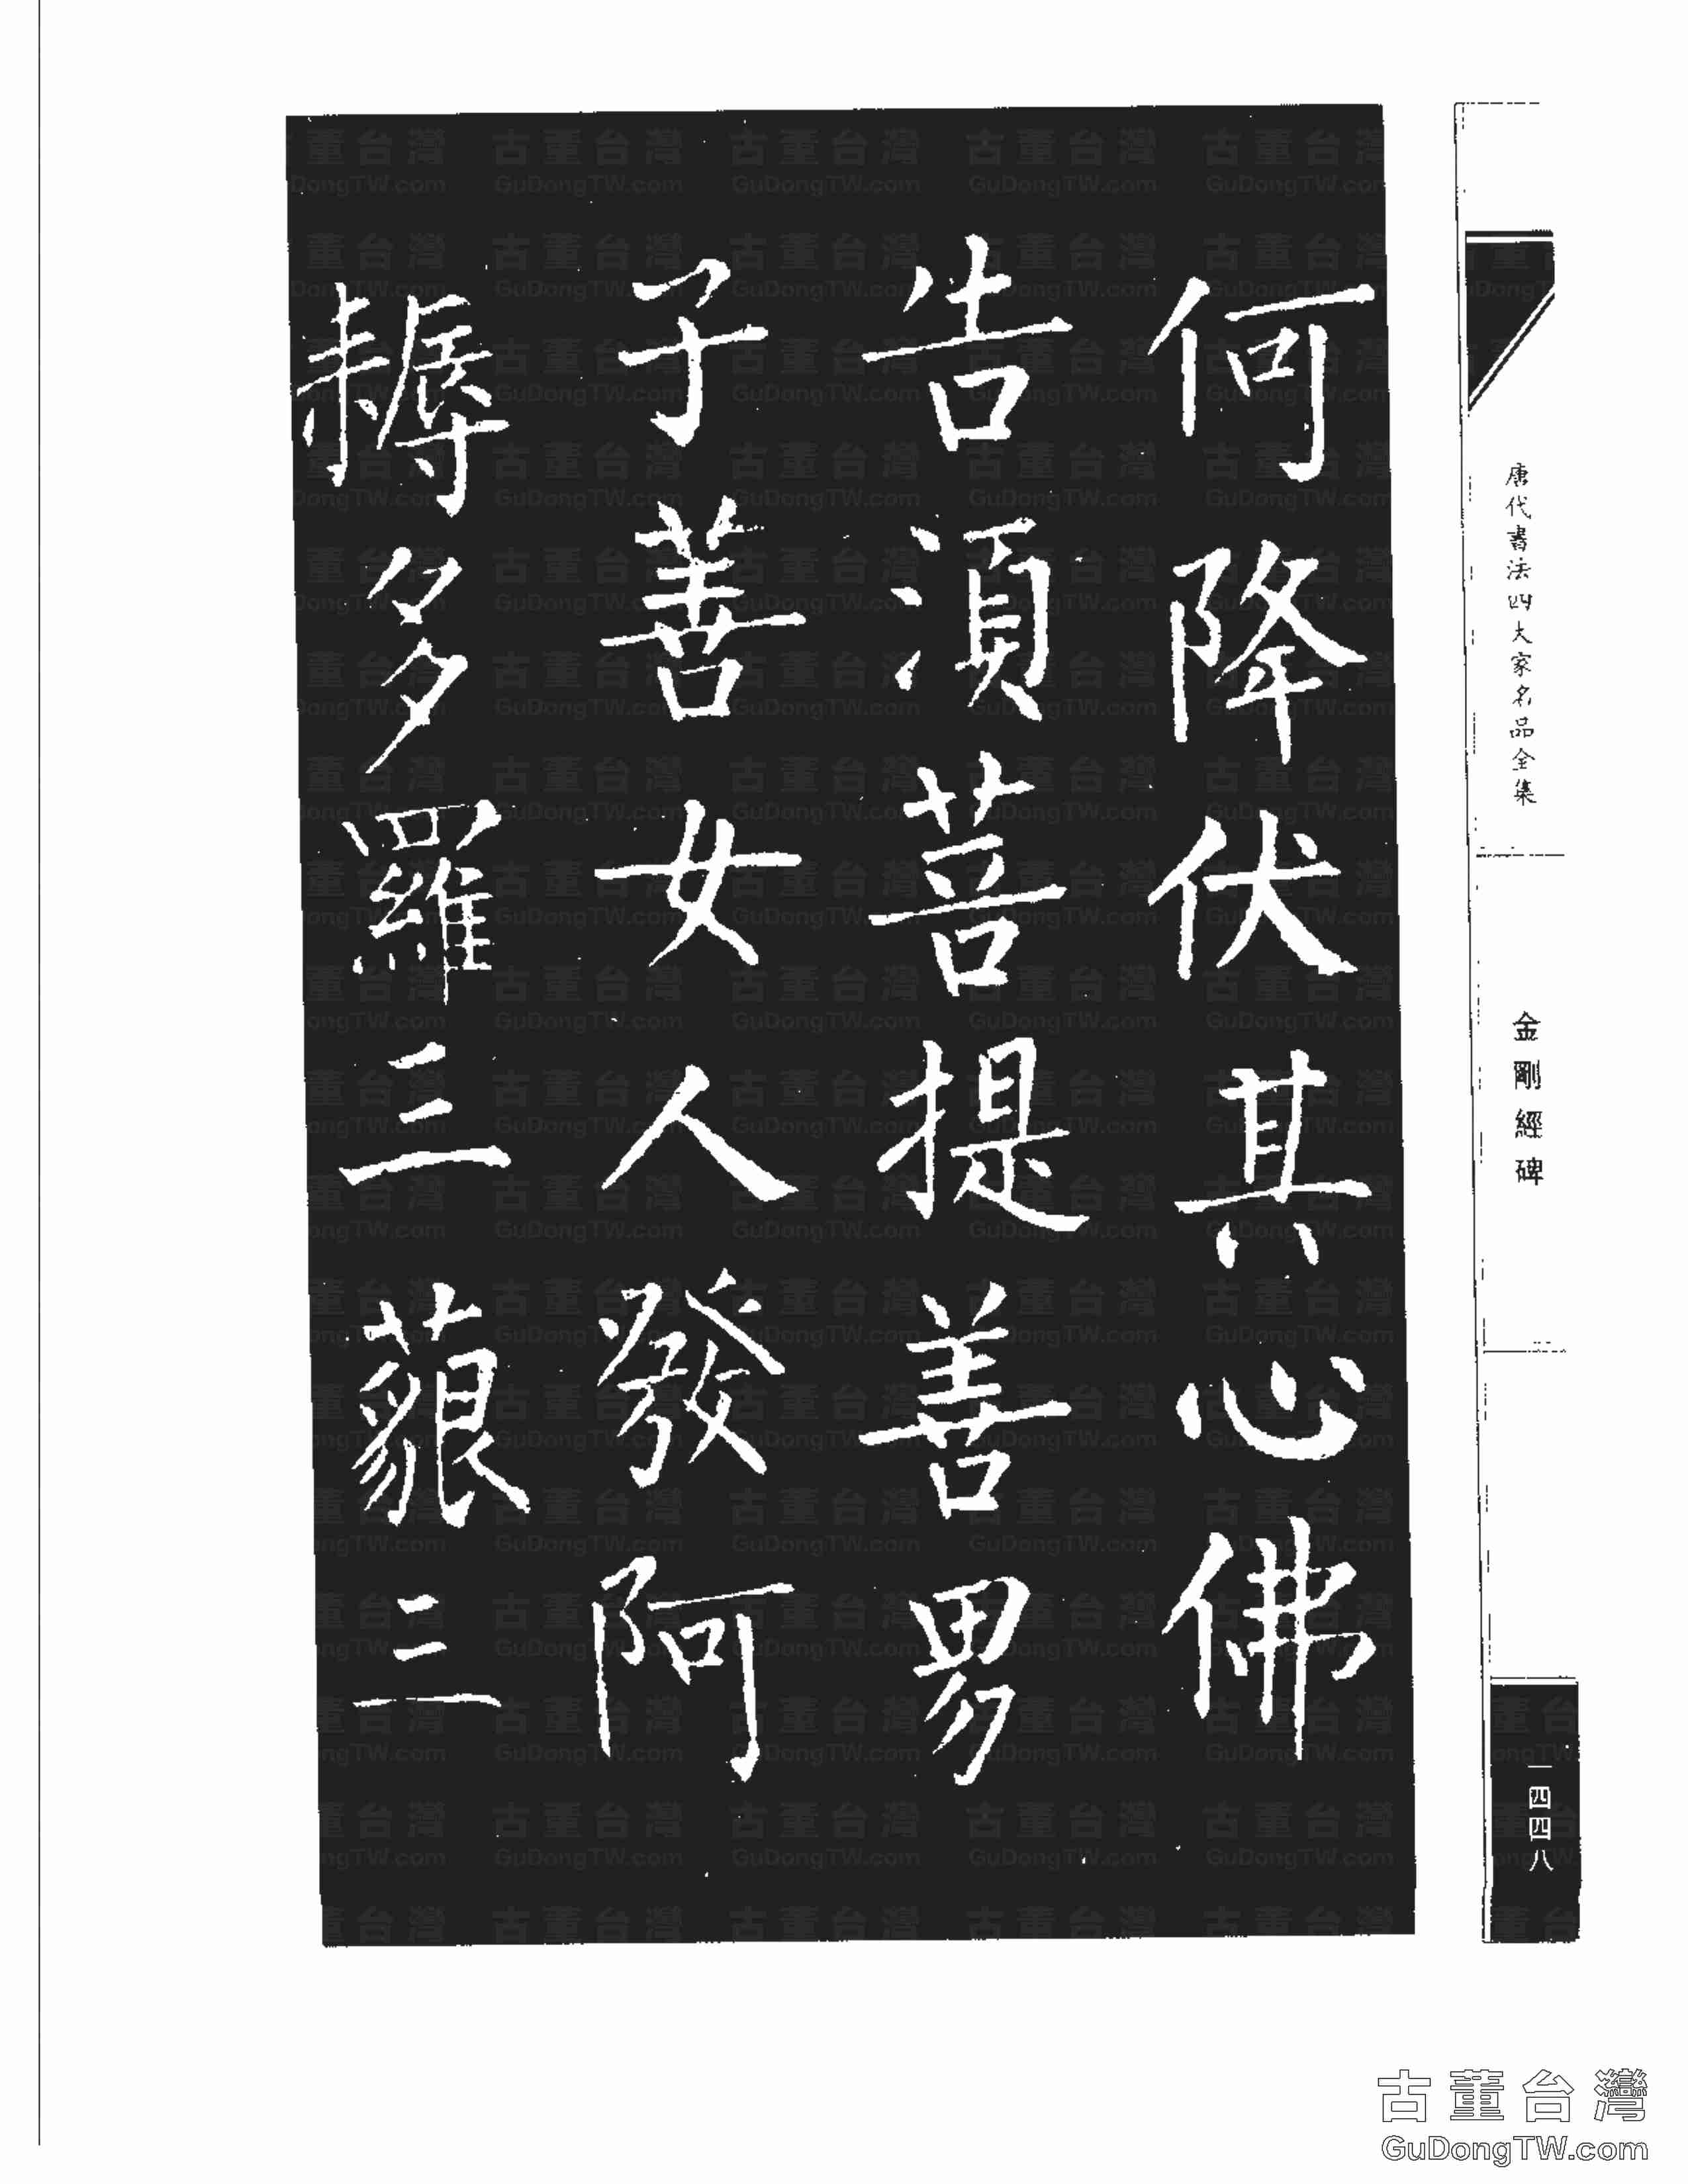 唐代書法四大家名品全集
金剛經碑
一四四八
何降伏其心佛
告須菩提善男
子善女人發阿
耨多羅三藐三
古董台灣
GuDongTW.com